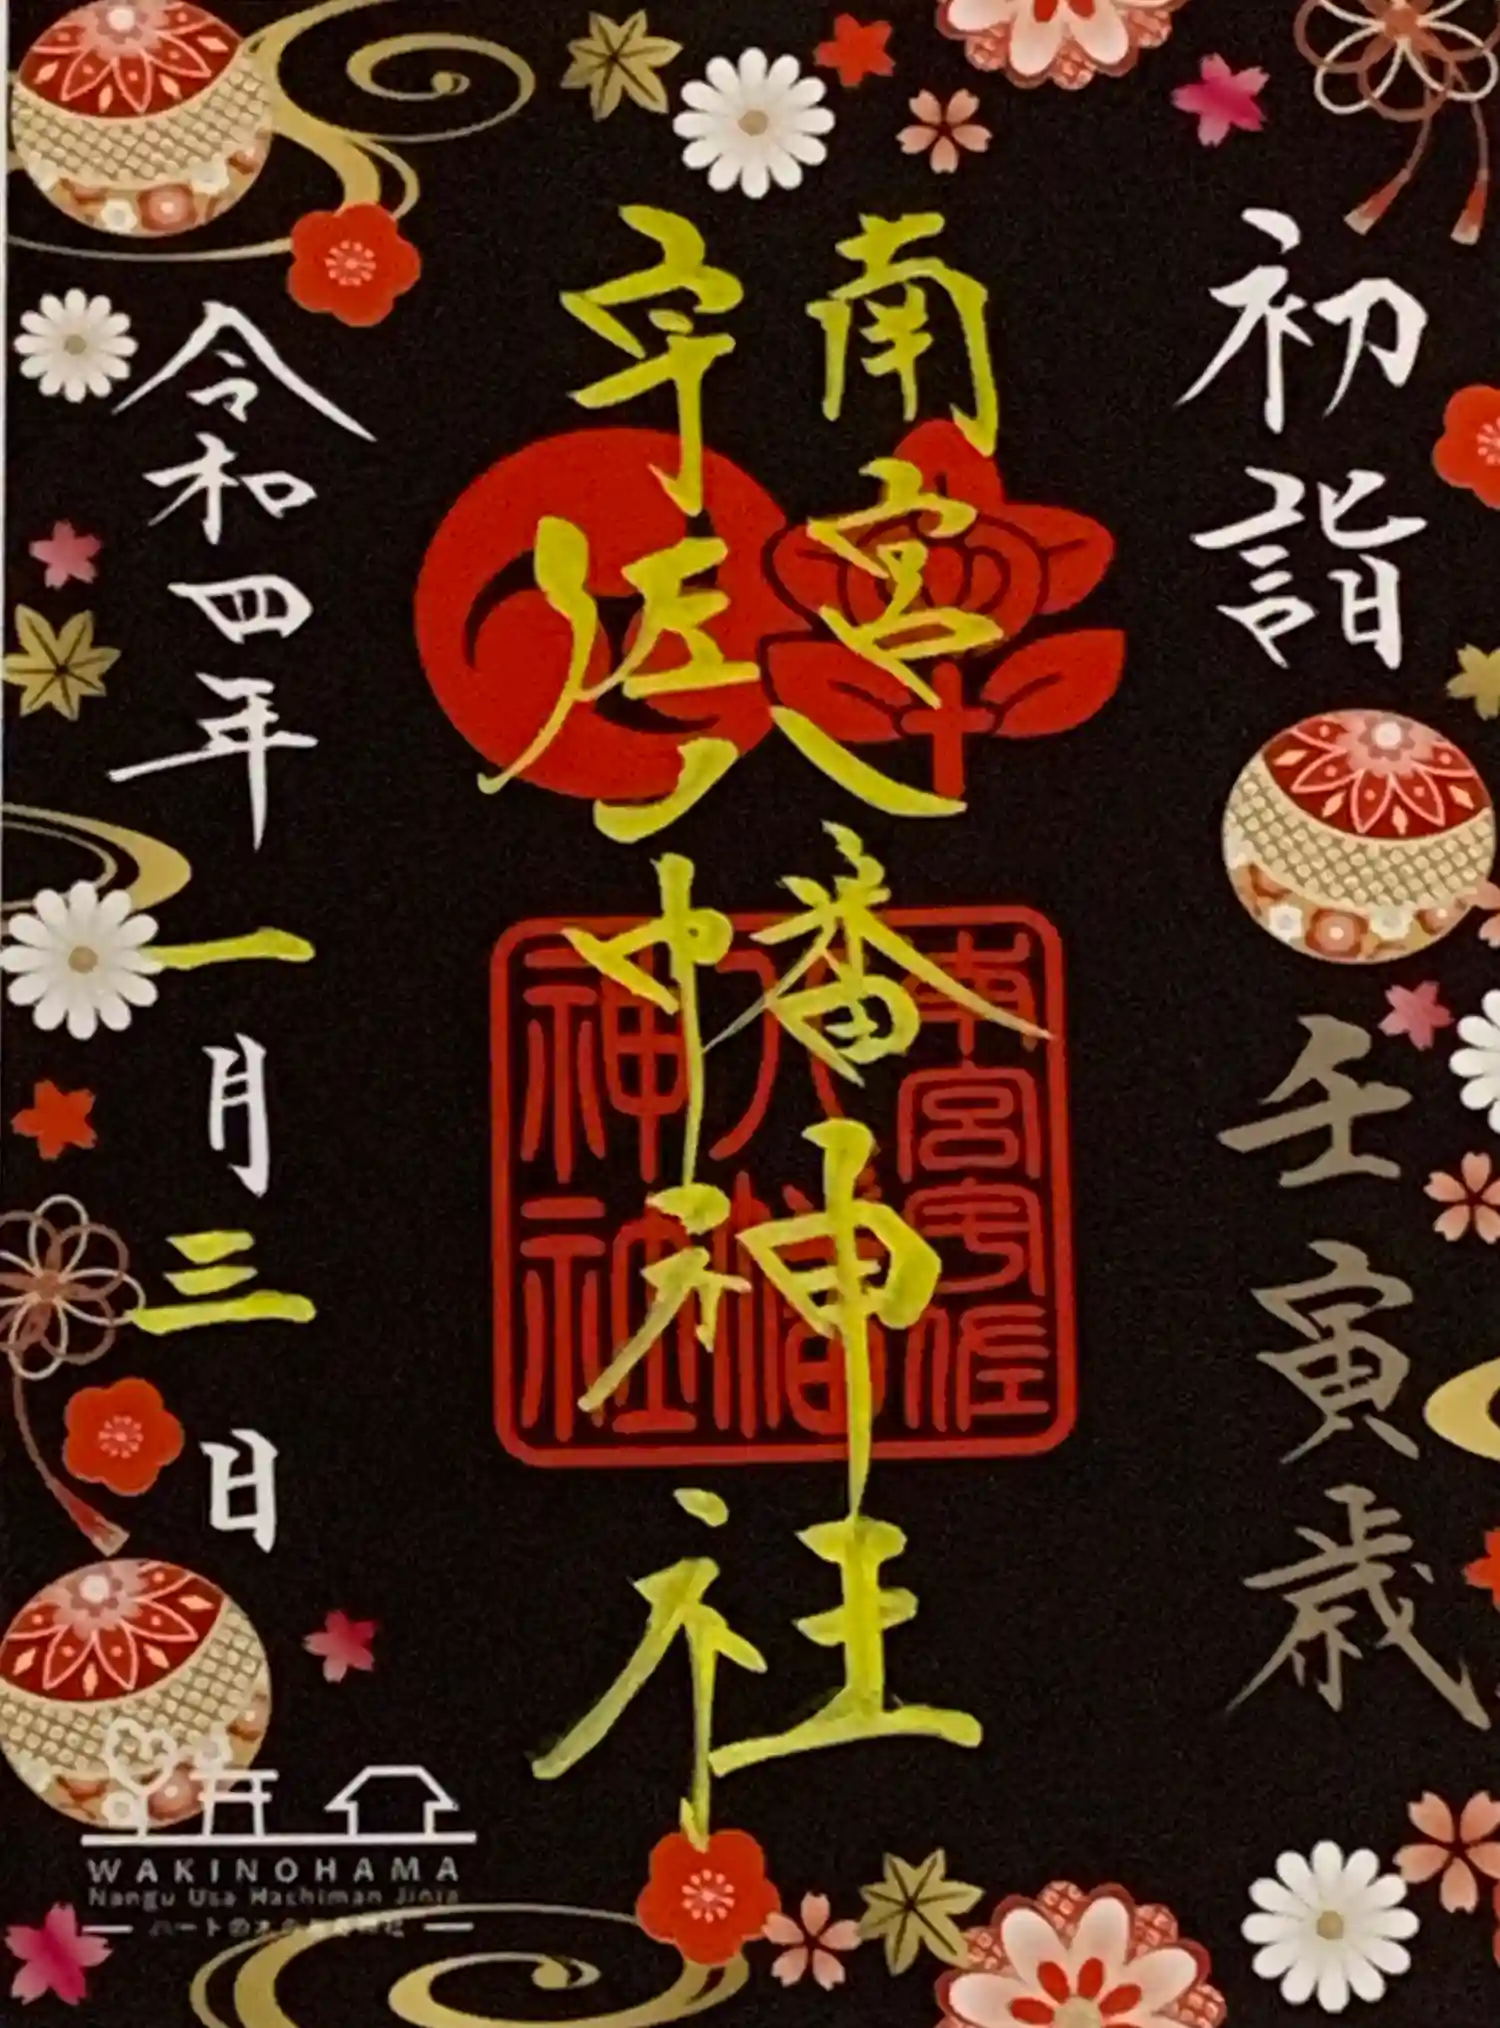 初詣
壬寅歳
南宮
宇佐
八幡神社
令和四年一月三日
南宮宇佐
八幡
神社
WAKINOHAMA
Nangu Usa Hachiman Jinja